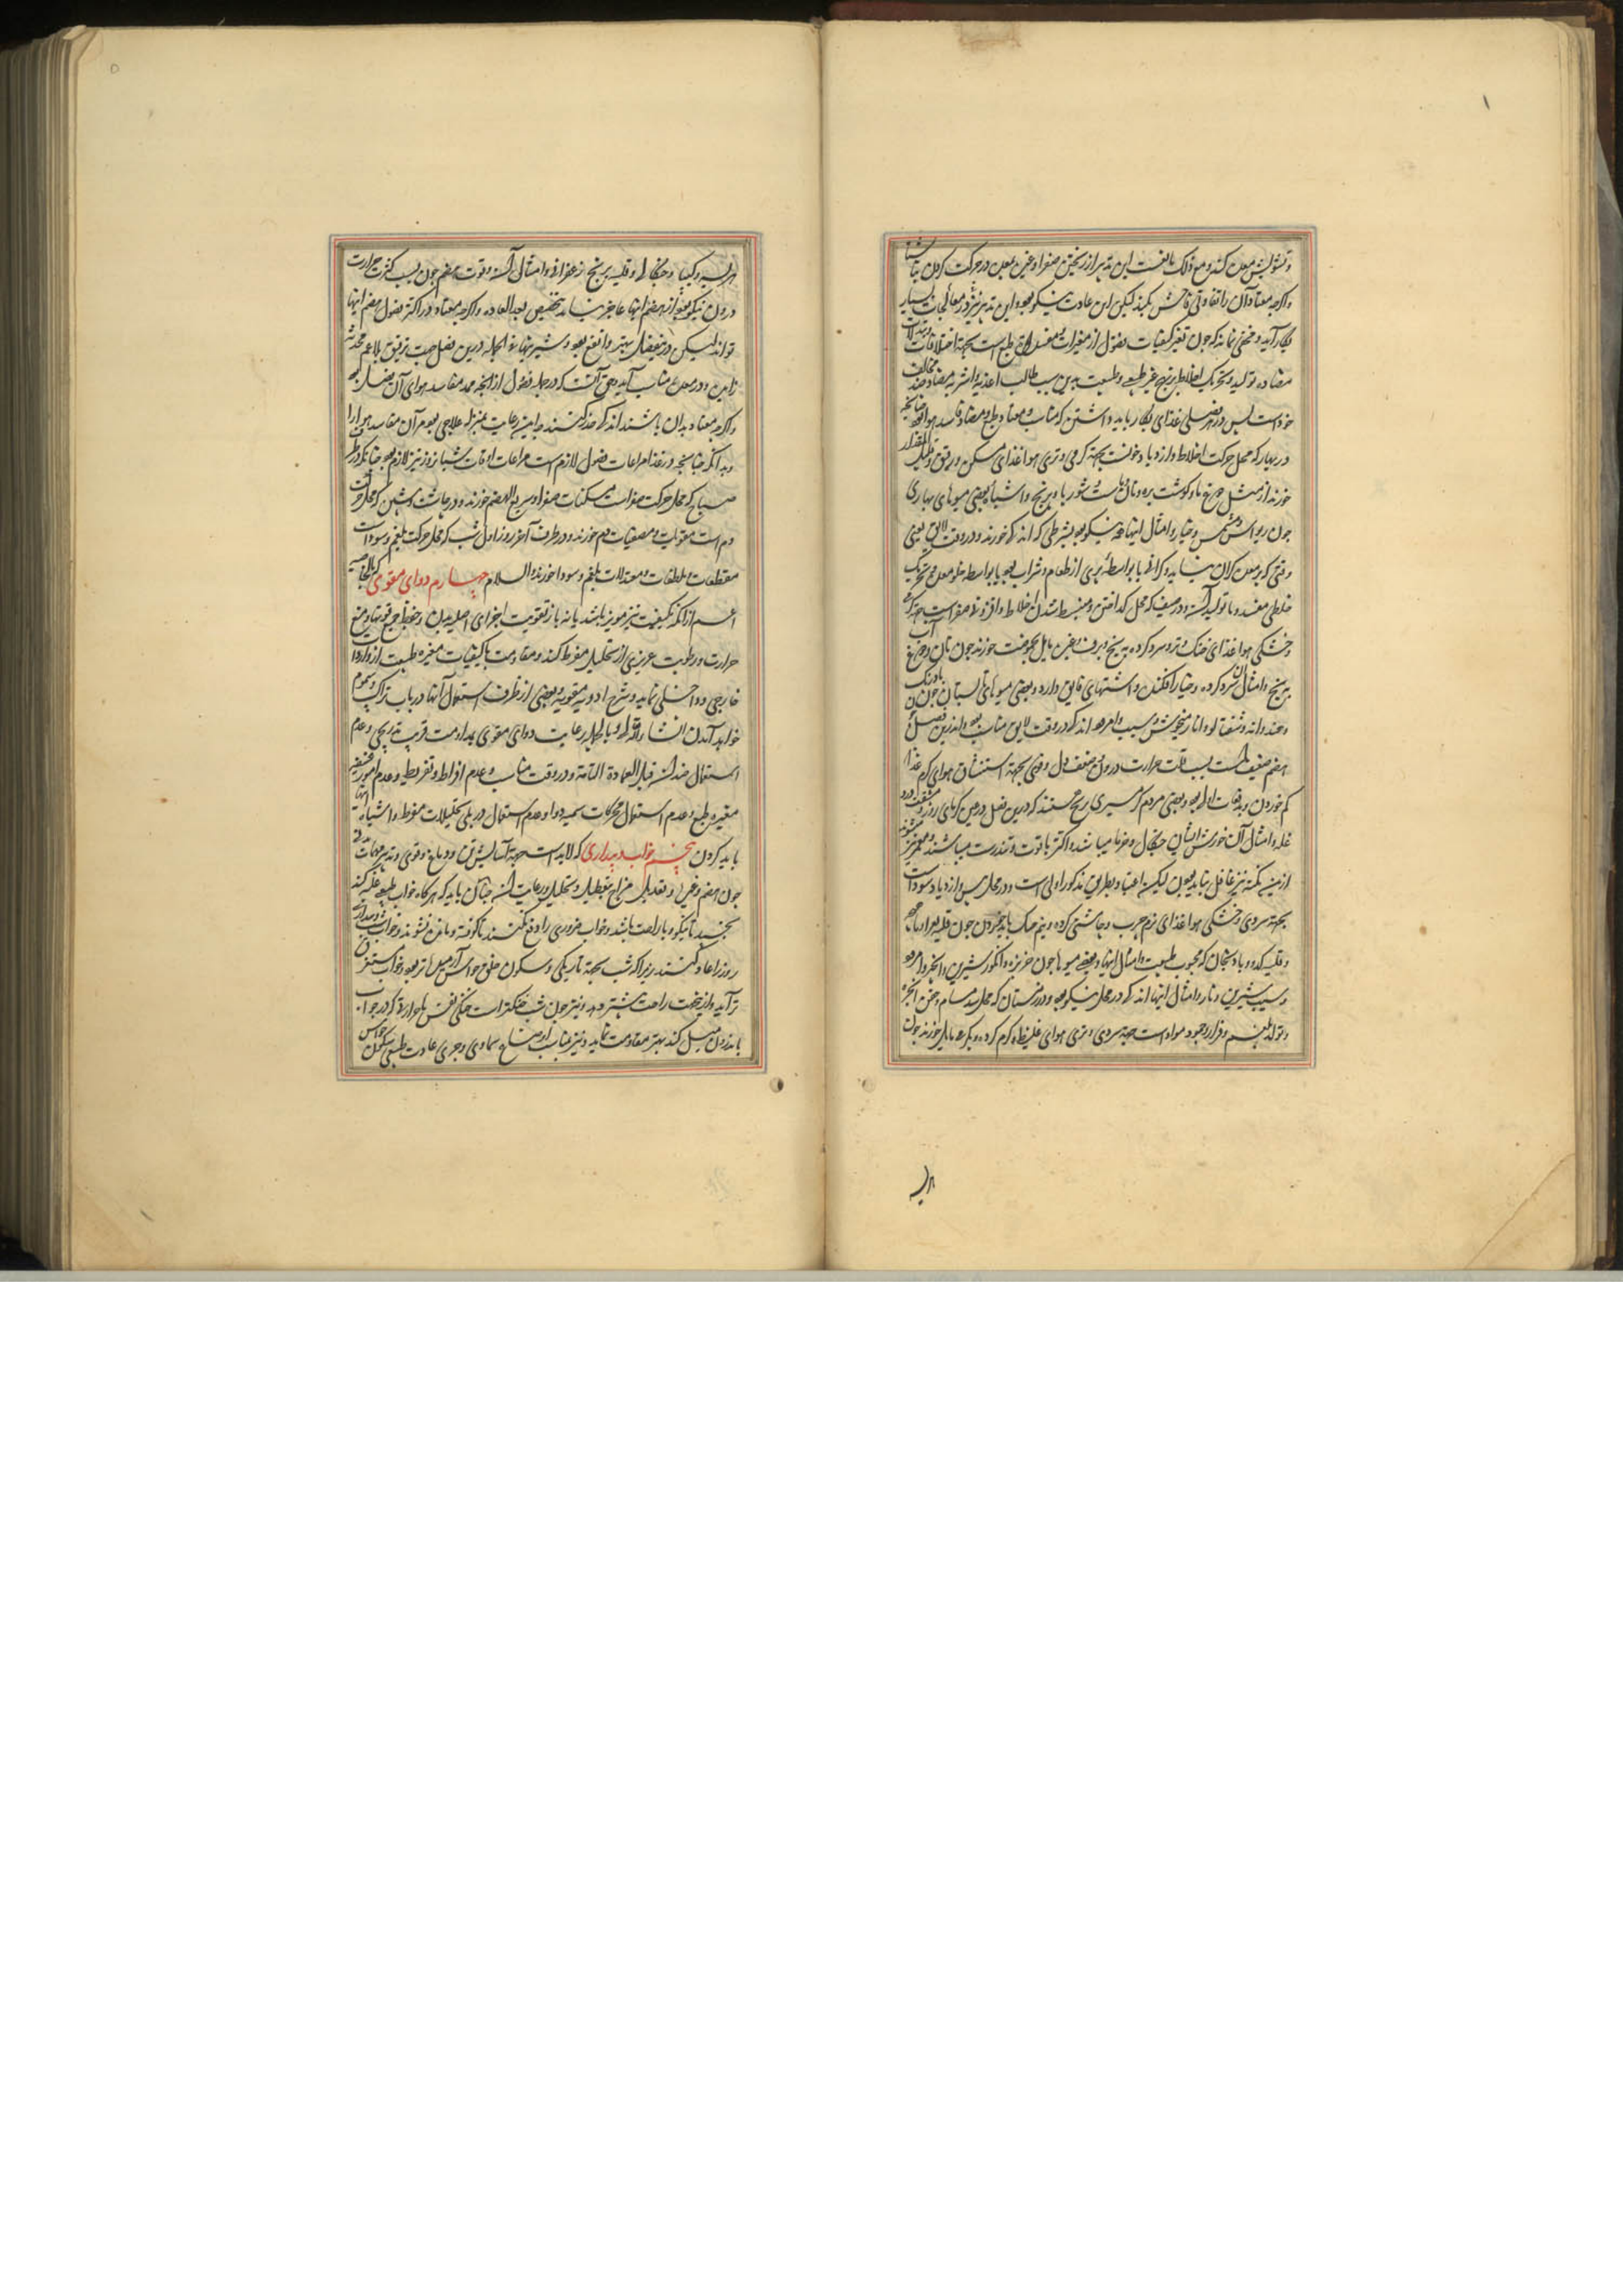 و تشویش معده کند و مع ذلک بالغست این تدبیر از ریختن صفرا و غیره بمعده در حرکت کردن
واکرچه معتاد آن را تفاوتی فاحش نکند لیکن این عادت نیکو بود و این تدبیر نیز در معالجات بسیار
بکار آید و مخفی نماند که چون تغیر کیفیات فصول از مغیرات طبع است بجهة اختلافات
مضاده تولید و تحریک اخلاط بر نهج غیر طبیعی و طبیعت بدین سبب طالب اغذیه و اشربه مضاد
خود است پس در هر فصلی غذای بکار باید داشتن که مناسب و معتاد طبع و مضاد فاسد هوا بود
در بهار که محل حرکت اخلاط و ازدیاد خونست بجهة کرمی و تری هوا غذای مسکن و رقیق
خورند از مثل مرغ ما و کوشت بره و نان و شوربا و برنج و اشباه بعضی میوهای بهاری
چون ریواس و مشمش و خیار و امثال اینها همه نیکو بود بشرطی که اندک خورند و در وقت لایق یعنی
وقتی که بر معده کران ننماید و کرانی یا بواسطه پری از طعام و شراب بود یا بواسطه خلو معده و تحریک
خلطی مفسد و یا تولید آن و در صیف که محل کداختن و منبسط شدن اخلاط و افزونی صفراست جهة کرمی
و خشکی هوا غذای خنک و تر و سرد کرده به یخ و برف و غیره مایل بحموضت خورند چون نان و دوغ
و برنج و امثال آن سرد کرده و خیار افکنده و اشتهای فایق دارد و بعضی میوهای تابستان چون
و هندوانه و شفتالو و انار میخوش و سیب و امرود اندک در وقت لایق مناسب بود و اندرین فصل
هضم ضعیف است بسبب قلت حرارت درون و ضعف دل و قوی بجهة استنشاق هوای کرم غذا
کم خوردن و بدفعات اولی بود و بعضی مردم کرمسیری هستند که درین فصل در عین کرمای روز
غله و امثال آن خورش ایشان چنکال و خرما میباشد و اکثر با قوت و تندرست میباشند
ازین نکته نیز غافل نباید بودن لیکن اعتیاد بطریق مذکور اولی است و در محل یبس و ازدیاد سوداست
بجهة سردی و خشکی هوا غذای نرم چرب و چاشنی کرده و نیم خنک باید خوردن چون قلیه
و قلیه کدو و بادنجان که محبوب طبیعت و امثال اینها و بعضی میوها چون خربزه و انکور شیرین و انجیر و امرود
و سیب شیرین و نار و امثال اینها اندک در محل نیکو بود و در زمستان که محل سد مسام و حقن ابخره
و تولد بلغم و قرار وجود مواد است جهة سردی و تری هوای غلیظ کرم کرده و بکرمی مایل خورند چون
هریسه
هریسه و کیپا و چنکال و قلیه برنج زعفرانی و امثال آن و قوت هضم چون بسبب کثرت حرارت
درون نیکو بود از هضم اینها عاجز نیاید بتخصیص بعد العاده واکرچه معتاد در اکثر فصول هضم اینها
تواند لیکن درین فصل بهتر و انفع بود و شیرینیها فی الجمله درین فصل جهت ترقیق بلاغم
زاهن در معده مناسب آید و حق آنست که در جمله فصول از انچه ممد مفاسد هوای آن فصل بود
واکرچه معتاد بدان باشند اندک حذر کنند و این رعایت بمنزله علاجی بود مر آن مفاسد هوا را
و بدانکه چنانچه در غذا مراعات فصول لازمست مراعات اوقات شبانروز نیز لازم بود چنانکه در
صباح که محل حرکت صفراست مسکنات صفرا و سریع الهضم خورند و در چاشت و پیشین که محل حرکت
دم است مقویات و مصفیات دم خورند و در طرف آخر روز و اول شب که محل حرکت بلغم و سوداست
مقطعات و ملطفات و معتدلات بلغم و سودا خورند والسلام چهارم دوای مقوی که بالخاصیه
اعم از انکه بکیفیت نیز موثر باشد یا نه باز تقویت اجزای اصلیه بدن و حفظ جمیع قوتها و منع
حرارت و رطوبت غریزی از تحلیل مفرط کند و مقاومت با کیفیات مغیره طبیعت از واردات
خارجی و داخلی نماید و شرح ادویه مقویه و بعضی از طرف استعمال آنها در باب تراکیب و سموم
خواهد آمدن انشاءالله و بالجمله رعایت دوای مقوی بمداومت قریب بتدریجی و عدم
استعمال ضد آن قبل العادة التامة و در وقت مناسب و عدم افراط و تفریط و عدم امور
مغیره طبع و عدم استعمال محرکات سمیه دوا و عدم استعمال در پی تحلیلات مفرط و اشباه اینها
باید کردن پنجم خواب و بیداری که لابد است جهة آسایش تن و دماغ و قوی و تدبیر مهمات
چون هضم و غیره و تعدیل مزاج بتعطیل و تحلیل و رعایت آن چنان باید که هرکاه خواب طبیعی غلبه کند
بخسبد تا نیکو و با راحت باشد و خواب ضروری را دفع نکنند تا کوفته و مانده نشوند و خواب
روز را عادت نکنند زیرا که شب بجهة تاریکی و سکون خلق حواس آرمیده تر بود و خواب مستغرق
تر آید و ازین جهت راحت بیشتر دهد و نیز چون شب خنکتر است خنکی نفس با حرارتی که در خواب
باندرون میل کند بهتر مقاومت نماید و نیز مناسب اوضاع سماوی و مجری عادت طبیعی سکون حواس